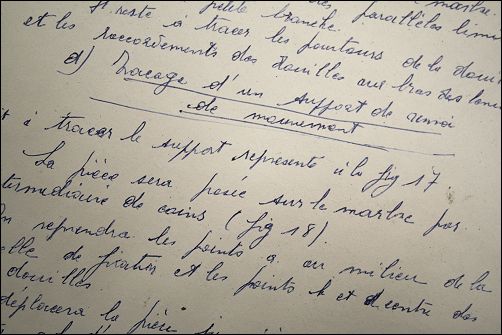 petite branche. parallèles
Il reste à tracer les pourtours de la
et les raccordements des douilles aux bras des
d) Traçage d'un support de renvoi
de mouvement
à tracer le support représenté à la fig 17
La pièce sera posée sur le marbre par
termédiaire de coins (fig 18).
reprendra les points a au milieu de la
de fixation et les points b et d centre des
douilles
déplacera la pièce